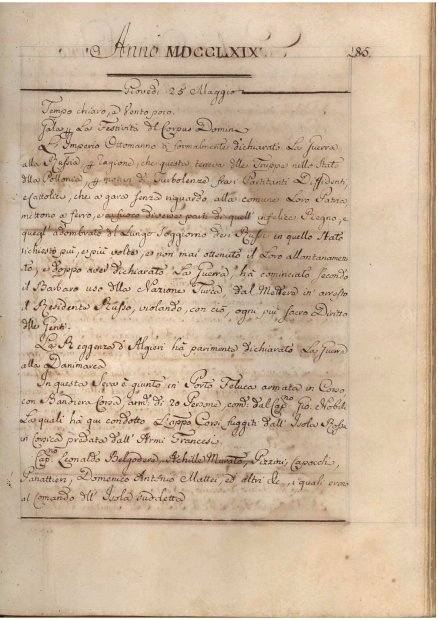 Anno MDCCLXIX
Giovedì 25 Maggio
Tempo chiaro, e Vento poco.
Gala p. La Festività del Corpus Domini
L'Imperio Ottomanno à formalmente dichiarato La Guerra
alla Russia, p. ragione, che questa teneva delle Truppe nello Stato
della Pollonia, p. motivi di Turbolenze fra i Partitanti Dissidenti,
e Cattolici, che a gara senza riguardo alla comune Loro Patria
mettono a ferro, e a fuoco diverse parti di quell'infelice Regno, e
quegl'adombrato del Lungo Soggiorno dei Russi in quello Stato
richiesto più, e più volte, e non mai ottenuto il Loro allontanamen-
to, e doppo aver dichiarato La Guerra, hà cominciato secondo
il Barbaro uso della Nazione Turca, dal Mettere in arresto
il Residente Russo, violando, con ciò, ogni più sacro Diritto
delle Genti.
La Reggenza d'Algieri hà parimente dichiarato La Guerra
alla Danimarca
In questa Sera è giunto in Porto Feluca armata in Corso
con Bandiera Corsa arm. di 20 Persone com. dal Cap. Gio.
La quali hà qui condotto Corsi fuggiti dall'Isola
in Corsica predata dall'Armi Francesi.
Cap. Leonaldo Belgodere, Achille Murato, Pizzini, Capocchi,
Panattieri, Domenico Antonio Mattei, ed altri &c. i quali erano
al Comando dell'Isola suddetta